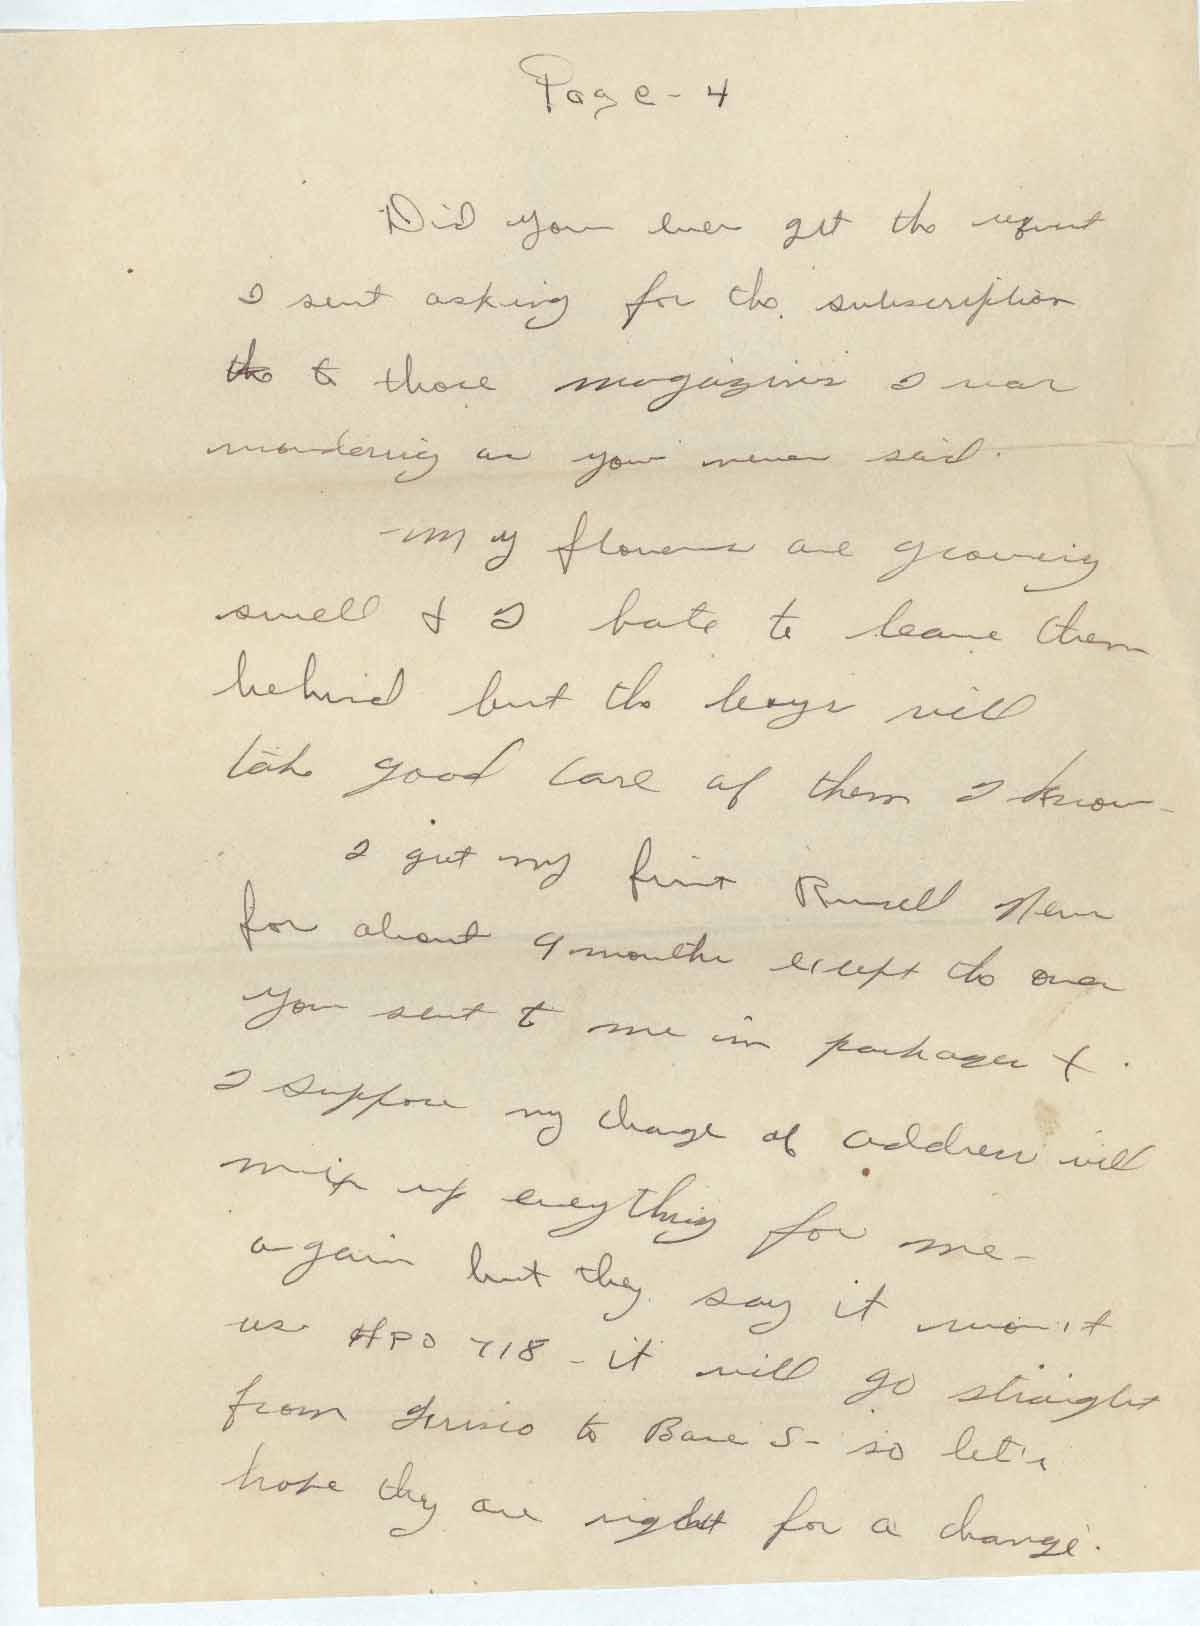 Page - 4
Did you ever get the request
I sent asking for the subscription
the to those magazines I was
wondering as you never said.
My flowers are growing
swell & I hate to leave them
behind but the boys will
take good care of them I know -
I got my first Russell News
for about 9 months except the ones
you sent to me in packages &
I suppose my change of address will
mix up everything for me -
again but they say it won't
use APO 718 - it will go straight
from Frisco to Base S - so let's
hope they are right for a change.